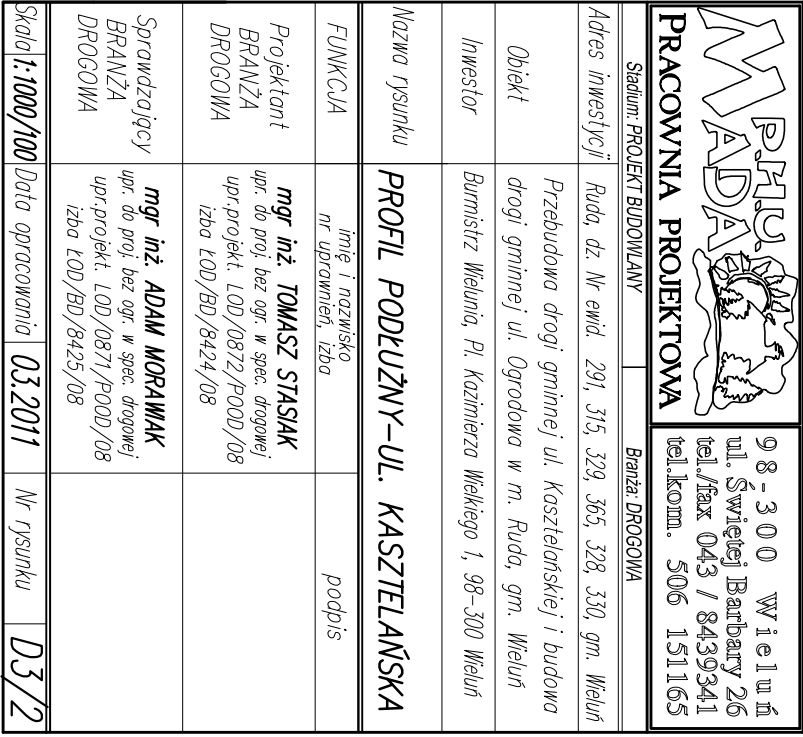 P.H.U.
MADA
PRACOWNIA PROJEKTOWA
98-300 Wieluń
ul. Świętej Barbary 26
tel./fax 043 / 8439341
tel.kom. 506 151165
Stadium: PROJEKT BUDOWLANY Branża: DROGOWA
Adres inwestycji Ruda, dz. Nr ewid. 291, 315, 329, 365, 328, 330, gm. Wieluń
Obiekt Przebudowa drogi gminnej ul. Kasztelańskiej i budowa
drogi gminnej ul. Ogrodowa w m. Ruda, gm. Wieluń
Inwestor Burmistrz Wielunia, Pl. Kazimierza Wielkiego 1, 98-300 Wieluń
Nazwa rysunku PROFIL PODŁUŻNY-UL. KASZTELAŃSKA
FUNKCJA imię i nazwisko
nr uprawnień, izba podpis
Projektant
BRANŻA
DROGOWA
mgr inż. TOMASZ STASIAK
upr. do proj. bez ogr. w spec. drogowej
upr.projekt. LOD/0872/POOD/08
izba ŁOD/BD/8424/08
Sprawdzający
BRANŻA
DROGOWA
mgr inż. ADAM MORAWIAK
upr. do proj. bez ogr. w spec. drogowej
upr.projekt. LOD/0871/POOD/08
izba ŁOD/BD/8425/08
Skala 1:1000/100 Data opracowania 03.2011 Nr rysunku D3/2